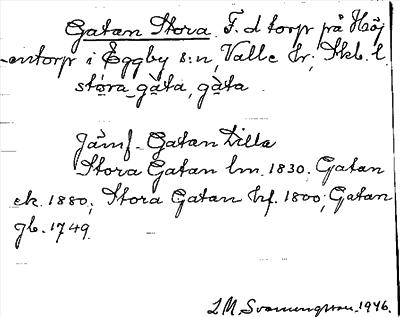 Gatan Stora F. d torp på Höj
-entorp i Eggby s:n, Valle hr, Skb. l.
stóra gàta, gàta
Jämf. Gatan Lilla
Stora Gatan lm. 1830. Gatan
ek. 1880; Stora Gatan hf. 1800; Gatan
gb. 1749.
L M Svanungsson. 1946.